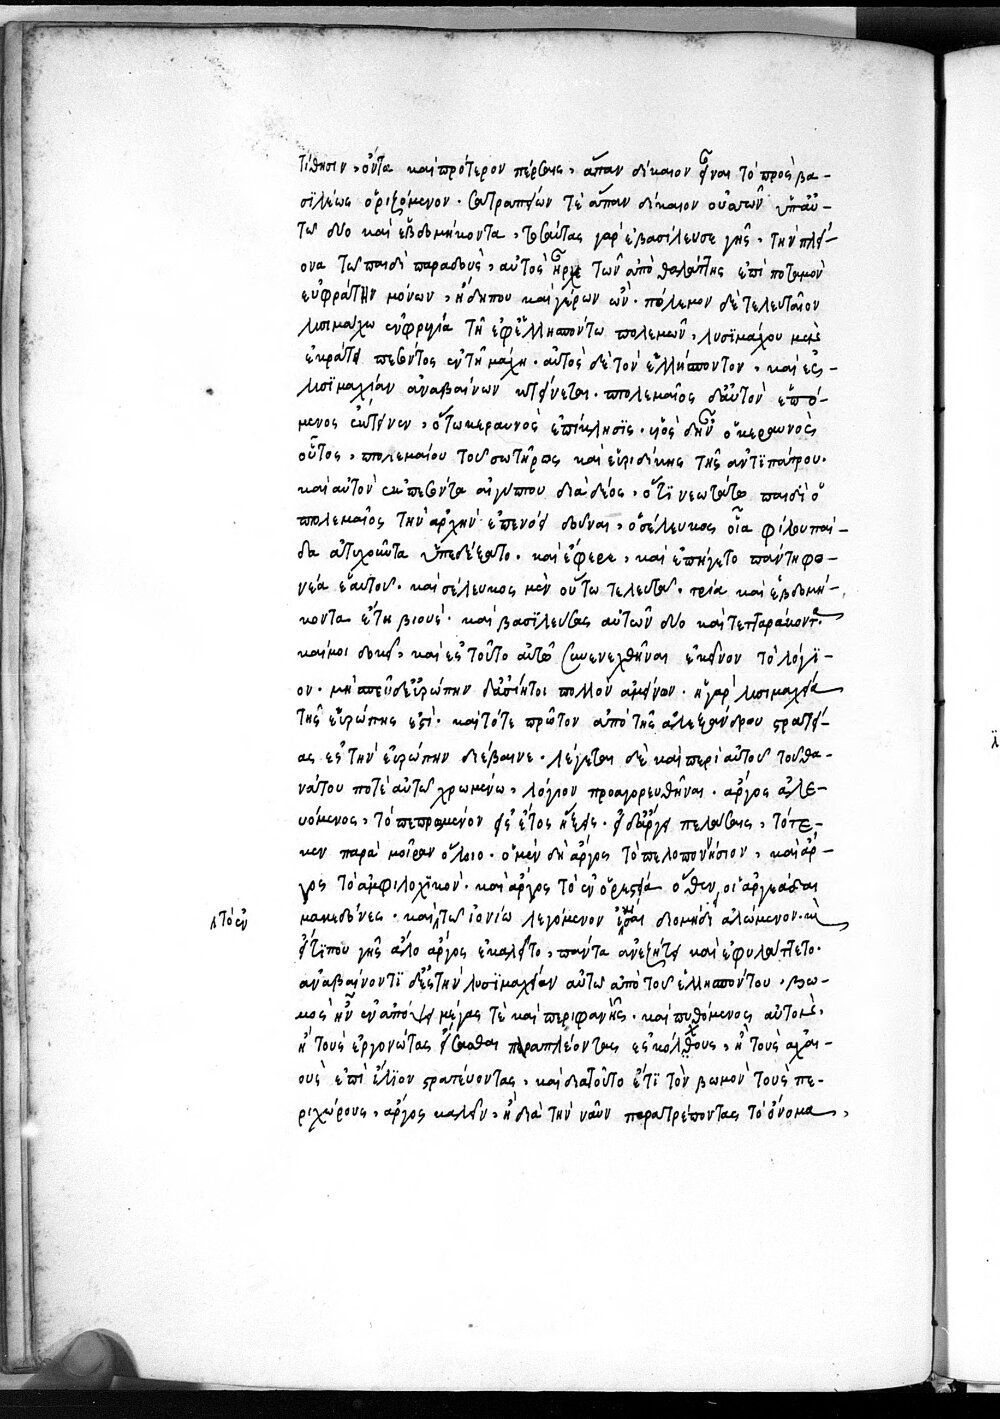 τίθησιν, ὄντα καὶ πρότερον πέρσαις, ἅπαν δίκαιον εἶναι τὸ πρὸς βα-
σιλέως ὁριζόμενον. σατραπειῶν τὲ ἅπαν δίκαιον οὐσῶν ὑπ' αὐ-
τῷ δύο καὶ ἑβδομήκοντα, τοσαύτης γὰρ ἐβασίλευσε γῆς. τὴν πλεί-
ονα τῷ παιδὶ παραδοὺς, αὐτὸς ἦρχε τῶν ἀπὸ θαλάττης ἐπὶ ποταμὸν
εὐφράτην μόνων, ἤδη που καὶ γέρων ὤν. πόλεμον δὲ τελευταῖον
λυσιμάχω ἐν φρυγία τῆ ἐφ' ἑλλησπόντω πολεμῶν, λυσϊμάχου μὲν
ἐκράτει πεσόντος ἐν τῆ μάχη. αὐτὸς δὲ τὸν ἑλλήσποντον, καὶ ἐς
λυσϊμαχίαν ἀναβαίνων κτείνεται. πτολεμαῖος δ' αὐτὸν ἑπό-
μενος ἔκτεινεν, ὅτω κεραυνὸς ἐπίκλησϊς. υἱὸς δ' ἦν ὁ κεραυνὸς
οὗτος, πτολεμαίου τοῦ σωτῆρος καὶ εὐρυδίκης τῆς ἀντϊπάτρου.
καὶ αὐτὸν ἐκπεσόντα αἰγύπτου διὰ δέος, ὅτϊ νεωτάτω παιδὶ ὁ
πτολεμαῖος τὴν ἀρχὴν ἐπενόει δοῦναι, ὁ σέλευκος οἷα φίλου παῖ-
δα ἀτυχοῦντα ὑπεδέξατο. καὶ ἔφερε, καὶ ἐπήγετο πάντη φο-
νέα ἑαυτοῦ. καὶ σέλευκος μὲν οὕτω τελευτᾶ. τρία καὶ ἑβδομή-
κοντα ἔτη βιούς. καὶ βασϊλεύσας αὐτῶν δύο καὶ τετταράκοντα.
καί μοι δοκεῖ, καὶ ἐς τοῦτο αὐτῶ συνενεχθῆναι ἐκεῖνον τὸ λόγϊ-
ον. μὴ σπεῦδ' εὐρώπην δ' ἀσίη τοι πολλὸν ἀμείνων. ἡ γὰρ λυσιμαχεία
τῆς εὐρώπης ἐστὶ. καὶ τότε πρῶτον ἀπὸ τῆς ἀλεξάνδρου στρατεί-
ας ἐς τὴν εὐρώπην διέβαινε. λέγεται δὲ καὶ περὶ αὐτοῦ τοῦ θα-
νάτου ποτὲ αὐτῶ χρωμένω, λόγιον προαγορευθῆναι. ἄργος ἀλε-
υόμενος, τὸ πεπρωμένον εἰς ἔτος ἥξεις. εἰ δ' ἄργει πελάσαις, τότε
κεν παρὰ μοῖραν ὄλοιο. ὁ μὲν δὴ ἄργος τὸ πελοποννήσιον, καὶ ἄρ-
γος τὸ ἀμφιλοχϊκὸν. καὶ ἄργος τὸ ἐν ὀρεστεία ὅθεν οἱ ἀργεάδαι
μακεδόνες. καὶ τῶ ἰονίω λεγόμενον διομήδει ἀλώμενον. καὶ
εἴ τϊ που γῆς ἄλλο ἄργος ἐκαλεῖτο, πάντα ἀνεζήτει καὶ ἐφυλάττετο.
ἀναβαίνοντϊ δ' ἐς τὴν λυσϊμαχείαν αὐτῶ ἀπὸ τοῦ ἑλλησπόντου, βω-
μὸς ἦν ἐν ἀπόψει μέγας τὲ καὶ περιφανὴς. καὶ πυθόμενος αὐτὸν,
ἢ τοὺς ἀργοναύτας ἵστασθαι παραπλέοντας ἐς κόλχους, ἢ τοὺς ἀχαι-
οὺς ἐπὶ ἴλϊον στρατεύοντας, καὶ διατοῦτο ἔτϊ τὸν βωμὸν τοὺς πε-
ριχώρους, ἄργος καλεῖν, ἢ διὰ τὴν ναῦν παρατρέποντας τὸ ὄνομα,
τὸ ἐν